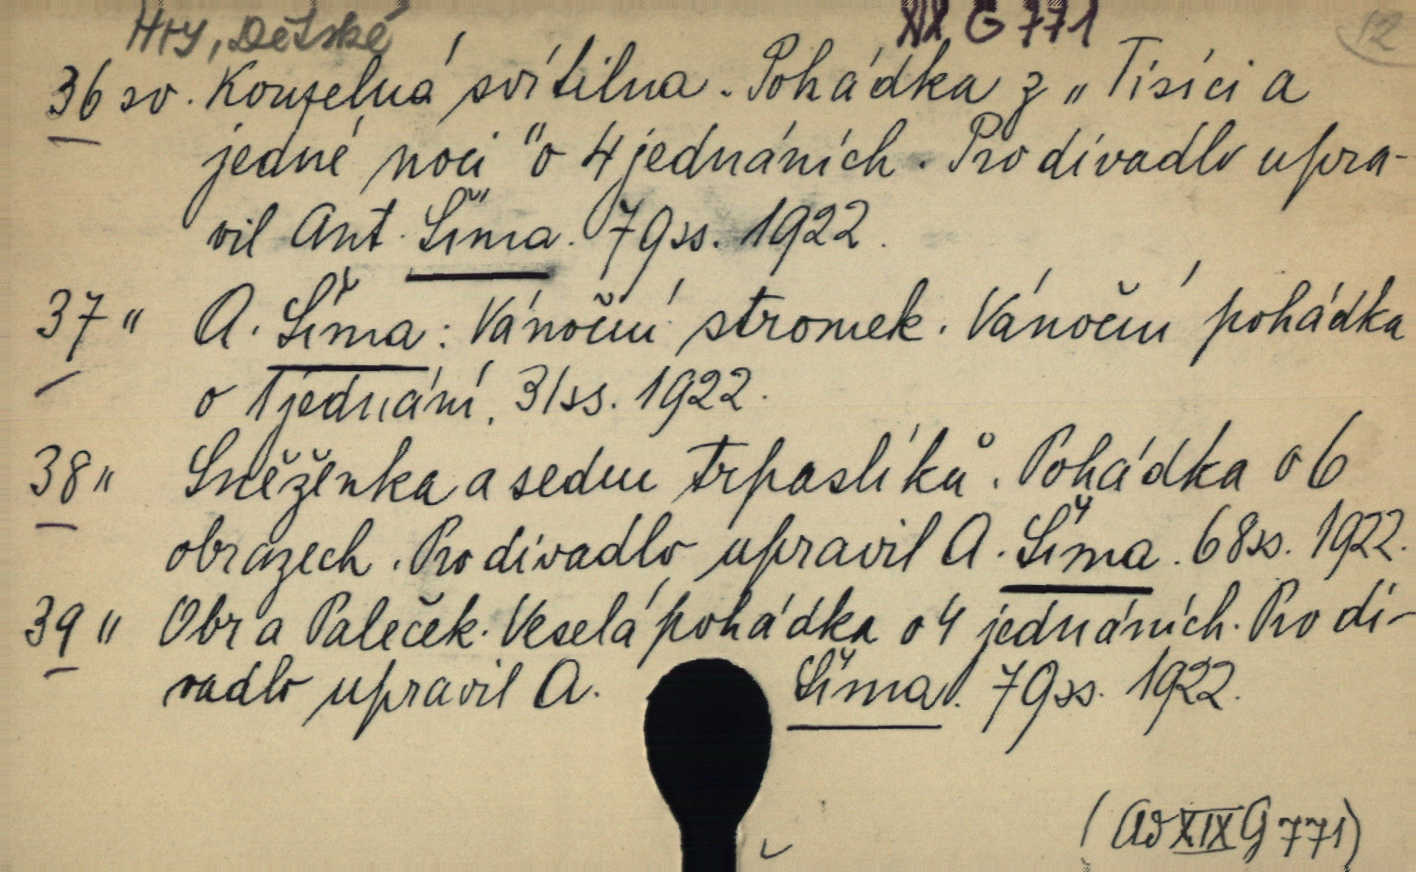 Hry, Dětské XIX G 771 12
36 sv. Kouzelná svítilna. Pohádka z „Tisíci a
jedné noci" o 4 jednáních. Pro divadlo upra-
vil Ant. Šíma. 79 ss. 1922.
37 " A. Šíma: Vánoční stromek. Vánoční pohádka
o 1 jednání. 31 ss. 1922.
38 " Sněženka a sedm trpaslíků. Pohádka o 6
obrazech. Pro divadlo upravil A. Šíma. 68 ss. 1922.
39 " Obr a Paleček. Veselá pohádka o 4 jednáních. Pro di-
vadlo upravil A. Šíma. 79 ss. 1922.
(Ad XIX G 771)